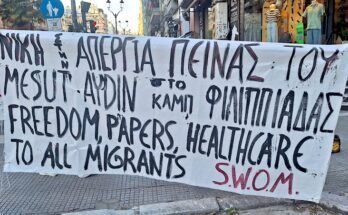 ΝΙΚΗ ΣΤΗΝ ΑΠΕΡΓΙΑ ΠΕΙΝΑΣ ΤΟΥ
MESUT AYDIN ΣΤΟ ΚΑΜΠ ΦΙΛΙΠΠΙΑΔΑΣ
FREEDOM, PAPERS, HEALTHCARE
TO ALL MIGRANTS S.W.O.M.